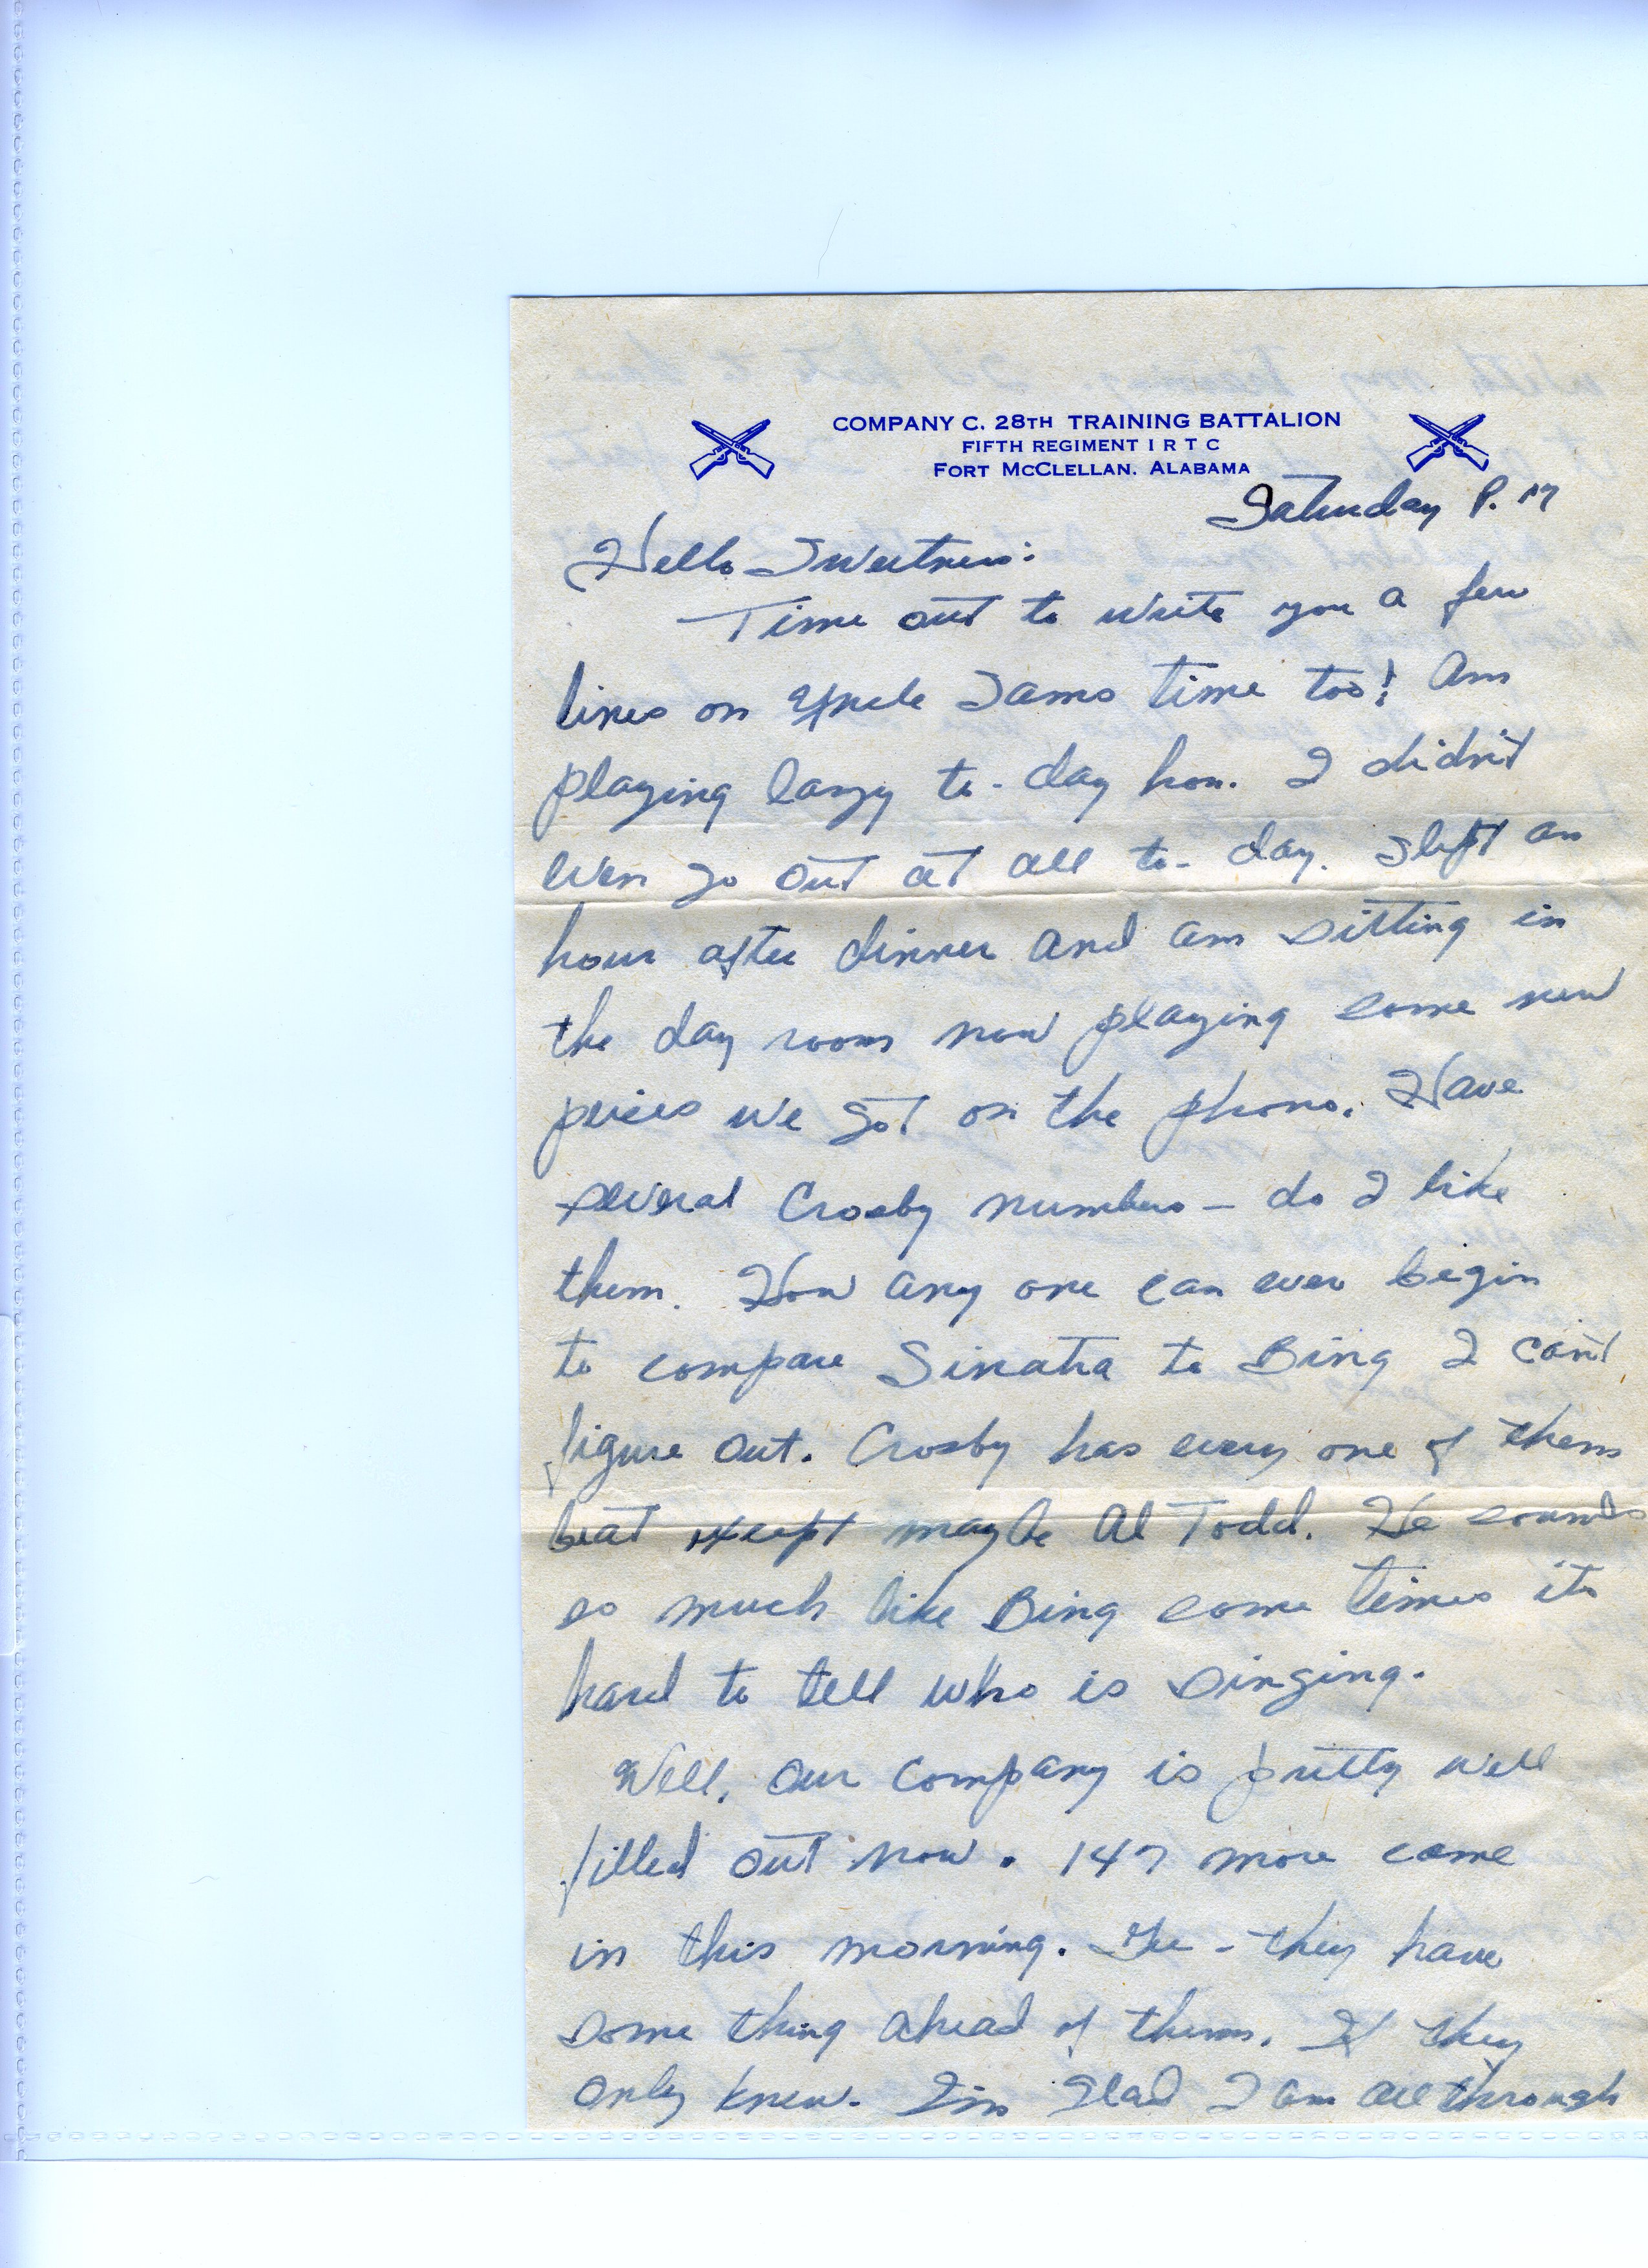 COMPANY C. 28TH TRAINING BATTALION
FIFTH REGIMENT I R T C
FORT MCCLELLAN. ALABAMA
Saturday P. M
Hello Sweetness:
Time out to write you a few
lines on Uncle Sams time too! Am
playing lazy to-day hon. I didn't
even go out at all to-day. Slept an
hour after dinner and am sitting in
the day room now playing some new
pieces we got on the phono. Have
several Crosby numbers - do I like
them. How any one can ever begin
to compare Sinatra to Bing I can't
figure out. Crosby has every one of them
beat except maybe Al Todd. He sounds
so much like Bing some times its
hard to tell who is singing.
Well, our company is pretty well
filled out now. 147 more came
in this morning. Gee - they have
some thing ahead of them. If they
only knew. I'm glad I am all through